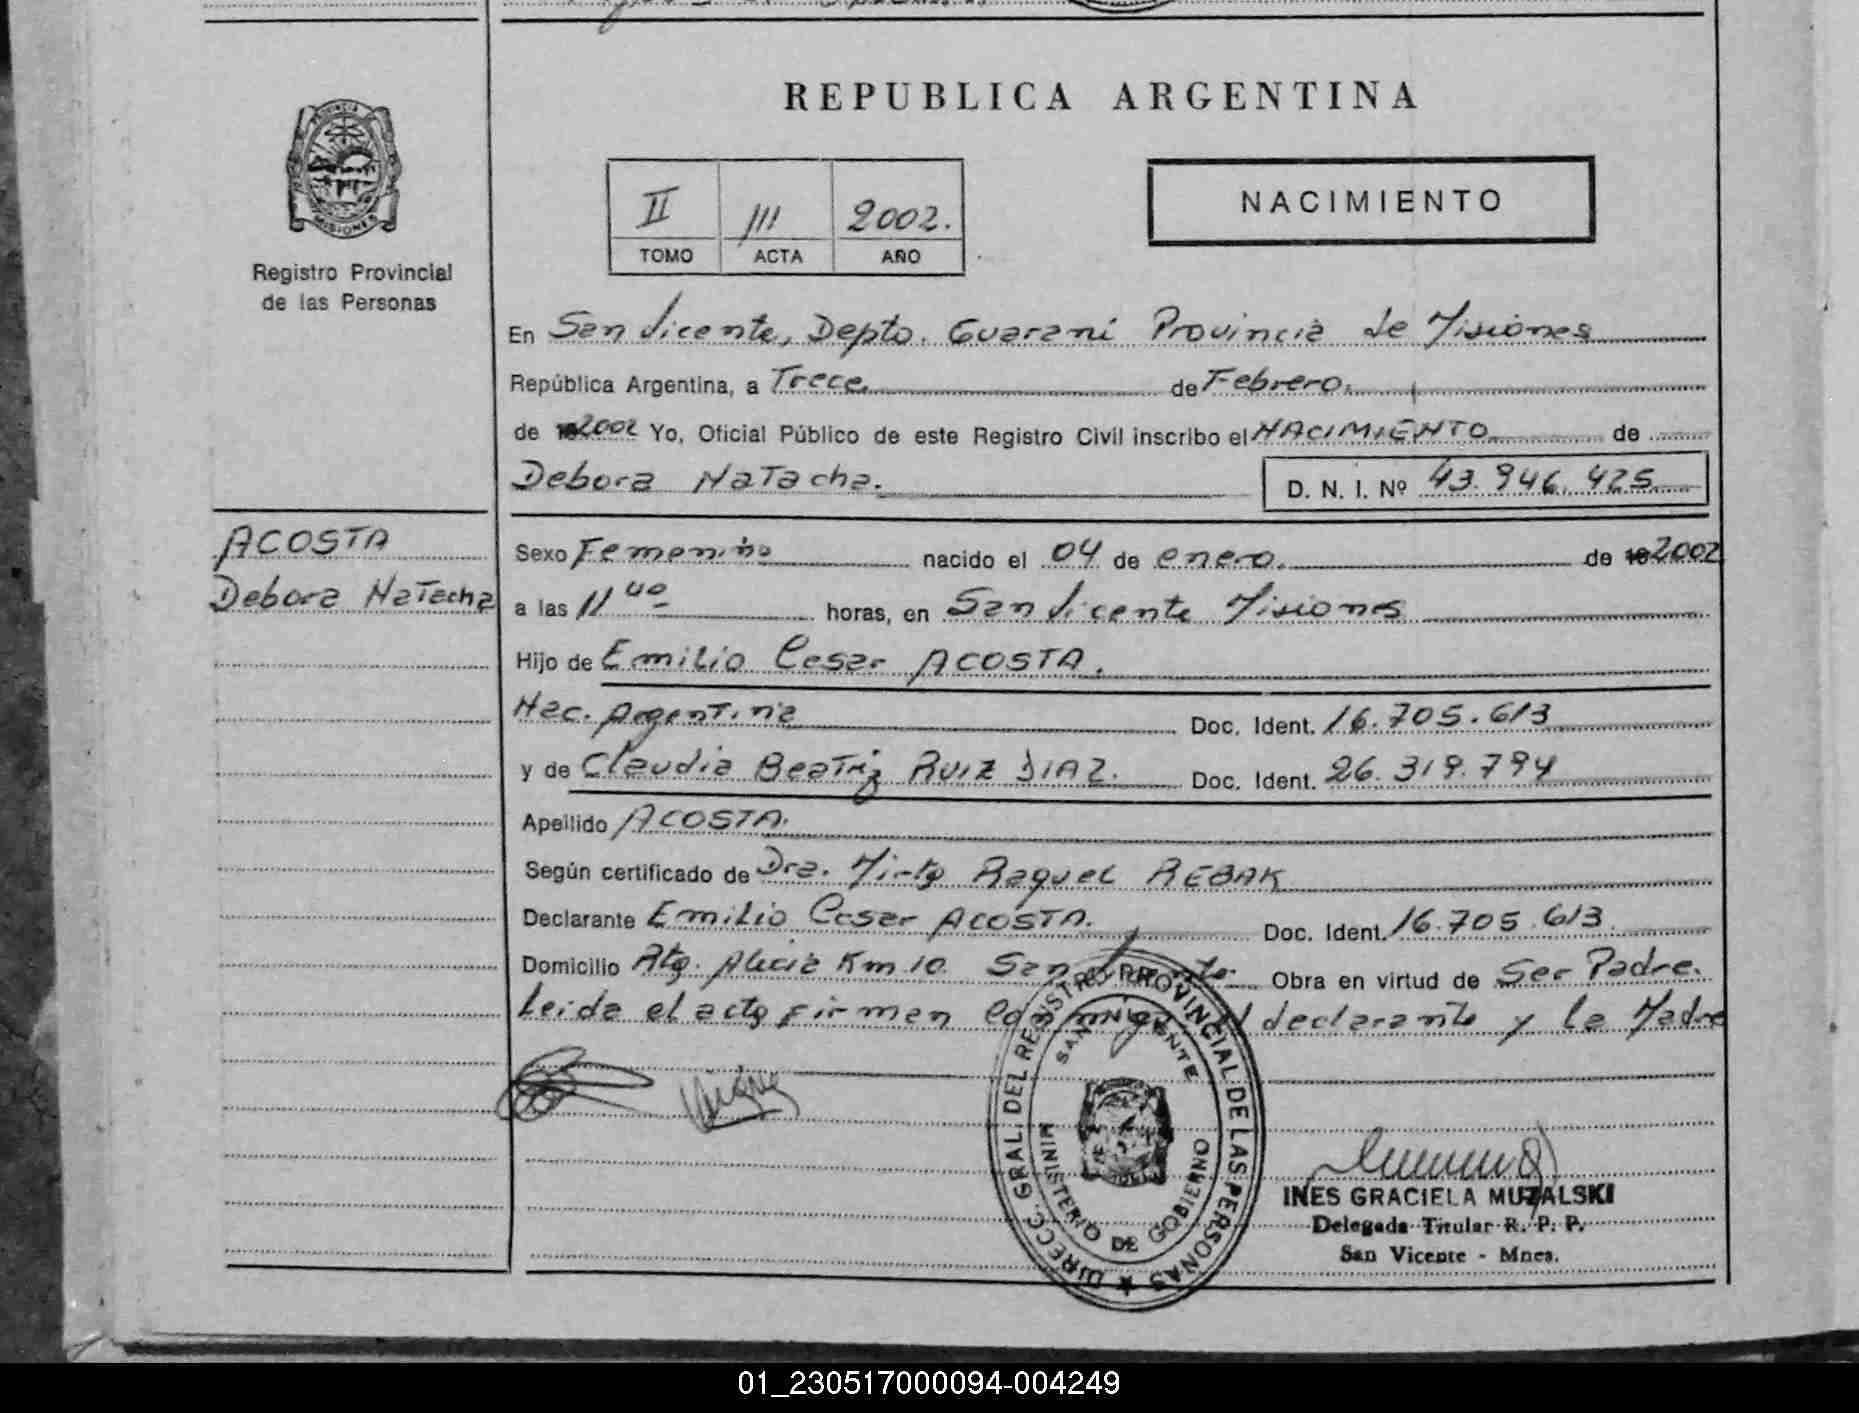 REPUBLICA ARGENTINA
II III 2002.
TOMO ACTA AÑO
NACIMIENTO
PROVINCIA DE MISIONES
Registro Provincial
de las Personas
En San Vicente, Depto. Guarani Provincia de Misiones
República Argentina, a Trece de Febrero.
de 2002 Yo, Oficial Público de este Registro Civil inscribo el NACIMIENTO de
Debora Natacha.
D. N. I. Nº 43.946.425
ACOSTA
Debora Natacha
Sexo Femenino nacido el 04 de enero. de 19 2002
a las 11 40 horas, en San Vicente Misiones
Hijo de Emilio Cesar ACOSTA.
Nac. Argentina Doc. Ident. 16.705.613
y de Claudia Beatriz RUIZ DIAZ. Doc. Ident. 26.319.794
Apellido ACOSTA.
Según certificado de Dra. Mirta Raquel REBAK
Declarante Emilio Cesar ACOSTA. Doc. Ident. 16.705.613
Domicilio Rta. Alicia Km 10 San Vicente. Obra en virtud de Ser Padre.
Leida el acta firman conmigo el declarante y la Madre
DIRECC. GRAL. DEL REGISTRO PROVINCIAL DE LAS PERSONAS
SAN VICENTE
MINISTERIO DE GOBIERNO
INES GRACIELA MUZALSKI
Delegada Titular R. P. P.
San Vicente - Mnes.
01_230517000094-004249